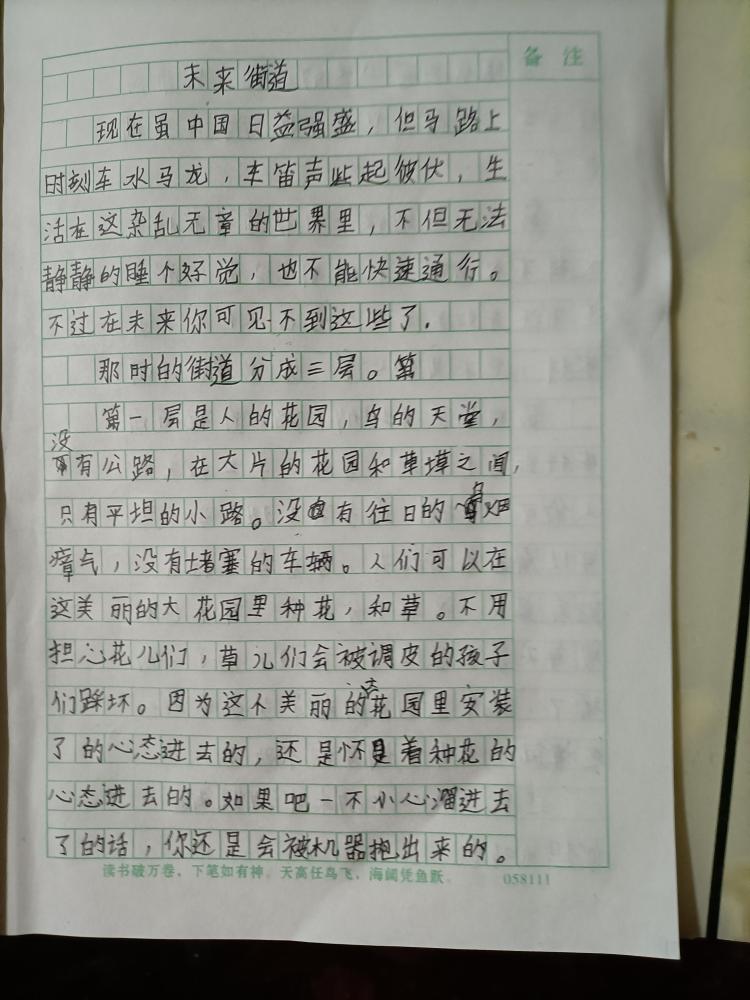 备 注
未来街道
现在虽中国日益强盛，但马路上
时刻车水马龙，车笛声此起彼伏，生
活在这杂乱无章的世界里，不但无法
静静的睡个好觉，也不能快速通行。
不过在未来你可见不到这些了.
那时的街道分成三层。第
第一层是人的花园，鸟的天堂，
没有公路，在大片的花园和草坪之间，
只有平坦的小路。没有往日的乌烟
瘴气，没有堵塞的车辆。人们可以在
这美丽的大花园里种花，和草。不用
担心花儿们，草儿们会被调皮的孩子
们踩坏。因为这个美丽的花园里安装
了的心态进去的，还是怀着种花的
心态进去的。如果吧一不小心溜进去
了的话，你还是会被机器抱出来的。
读书破万卷，下笔如有神。天高任鸟飞，海阔凭鱼跃。 058111